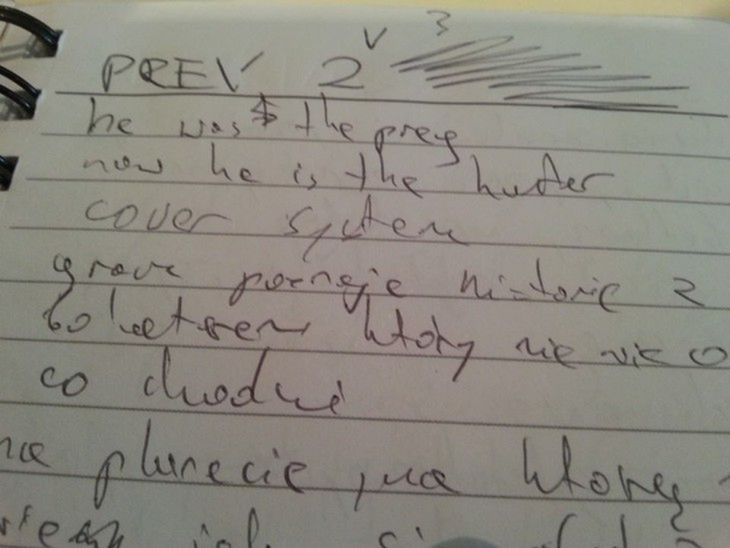 PREY 2
he was the prey
now he is the hunter
cover system
gracz poznaje historie z
bohaterem który nie wie o
co chodzi
na planecie, na której